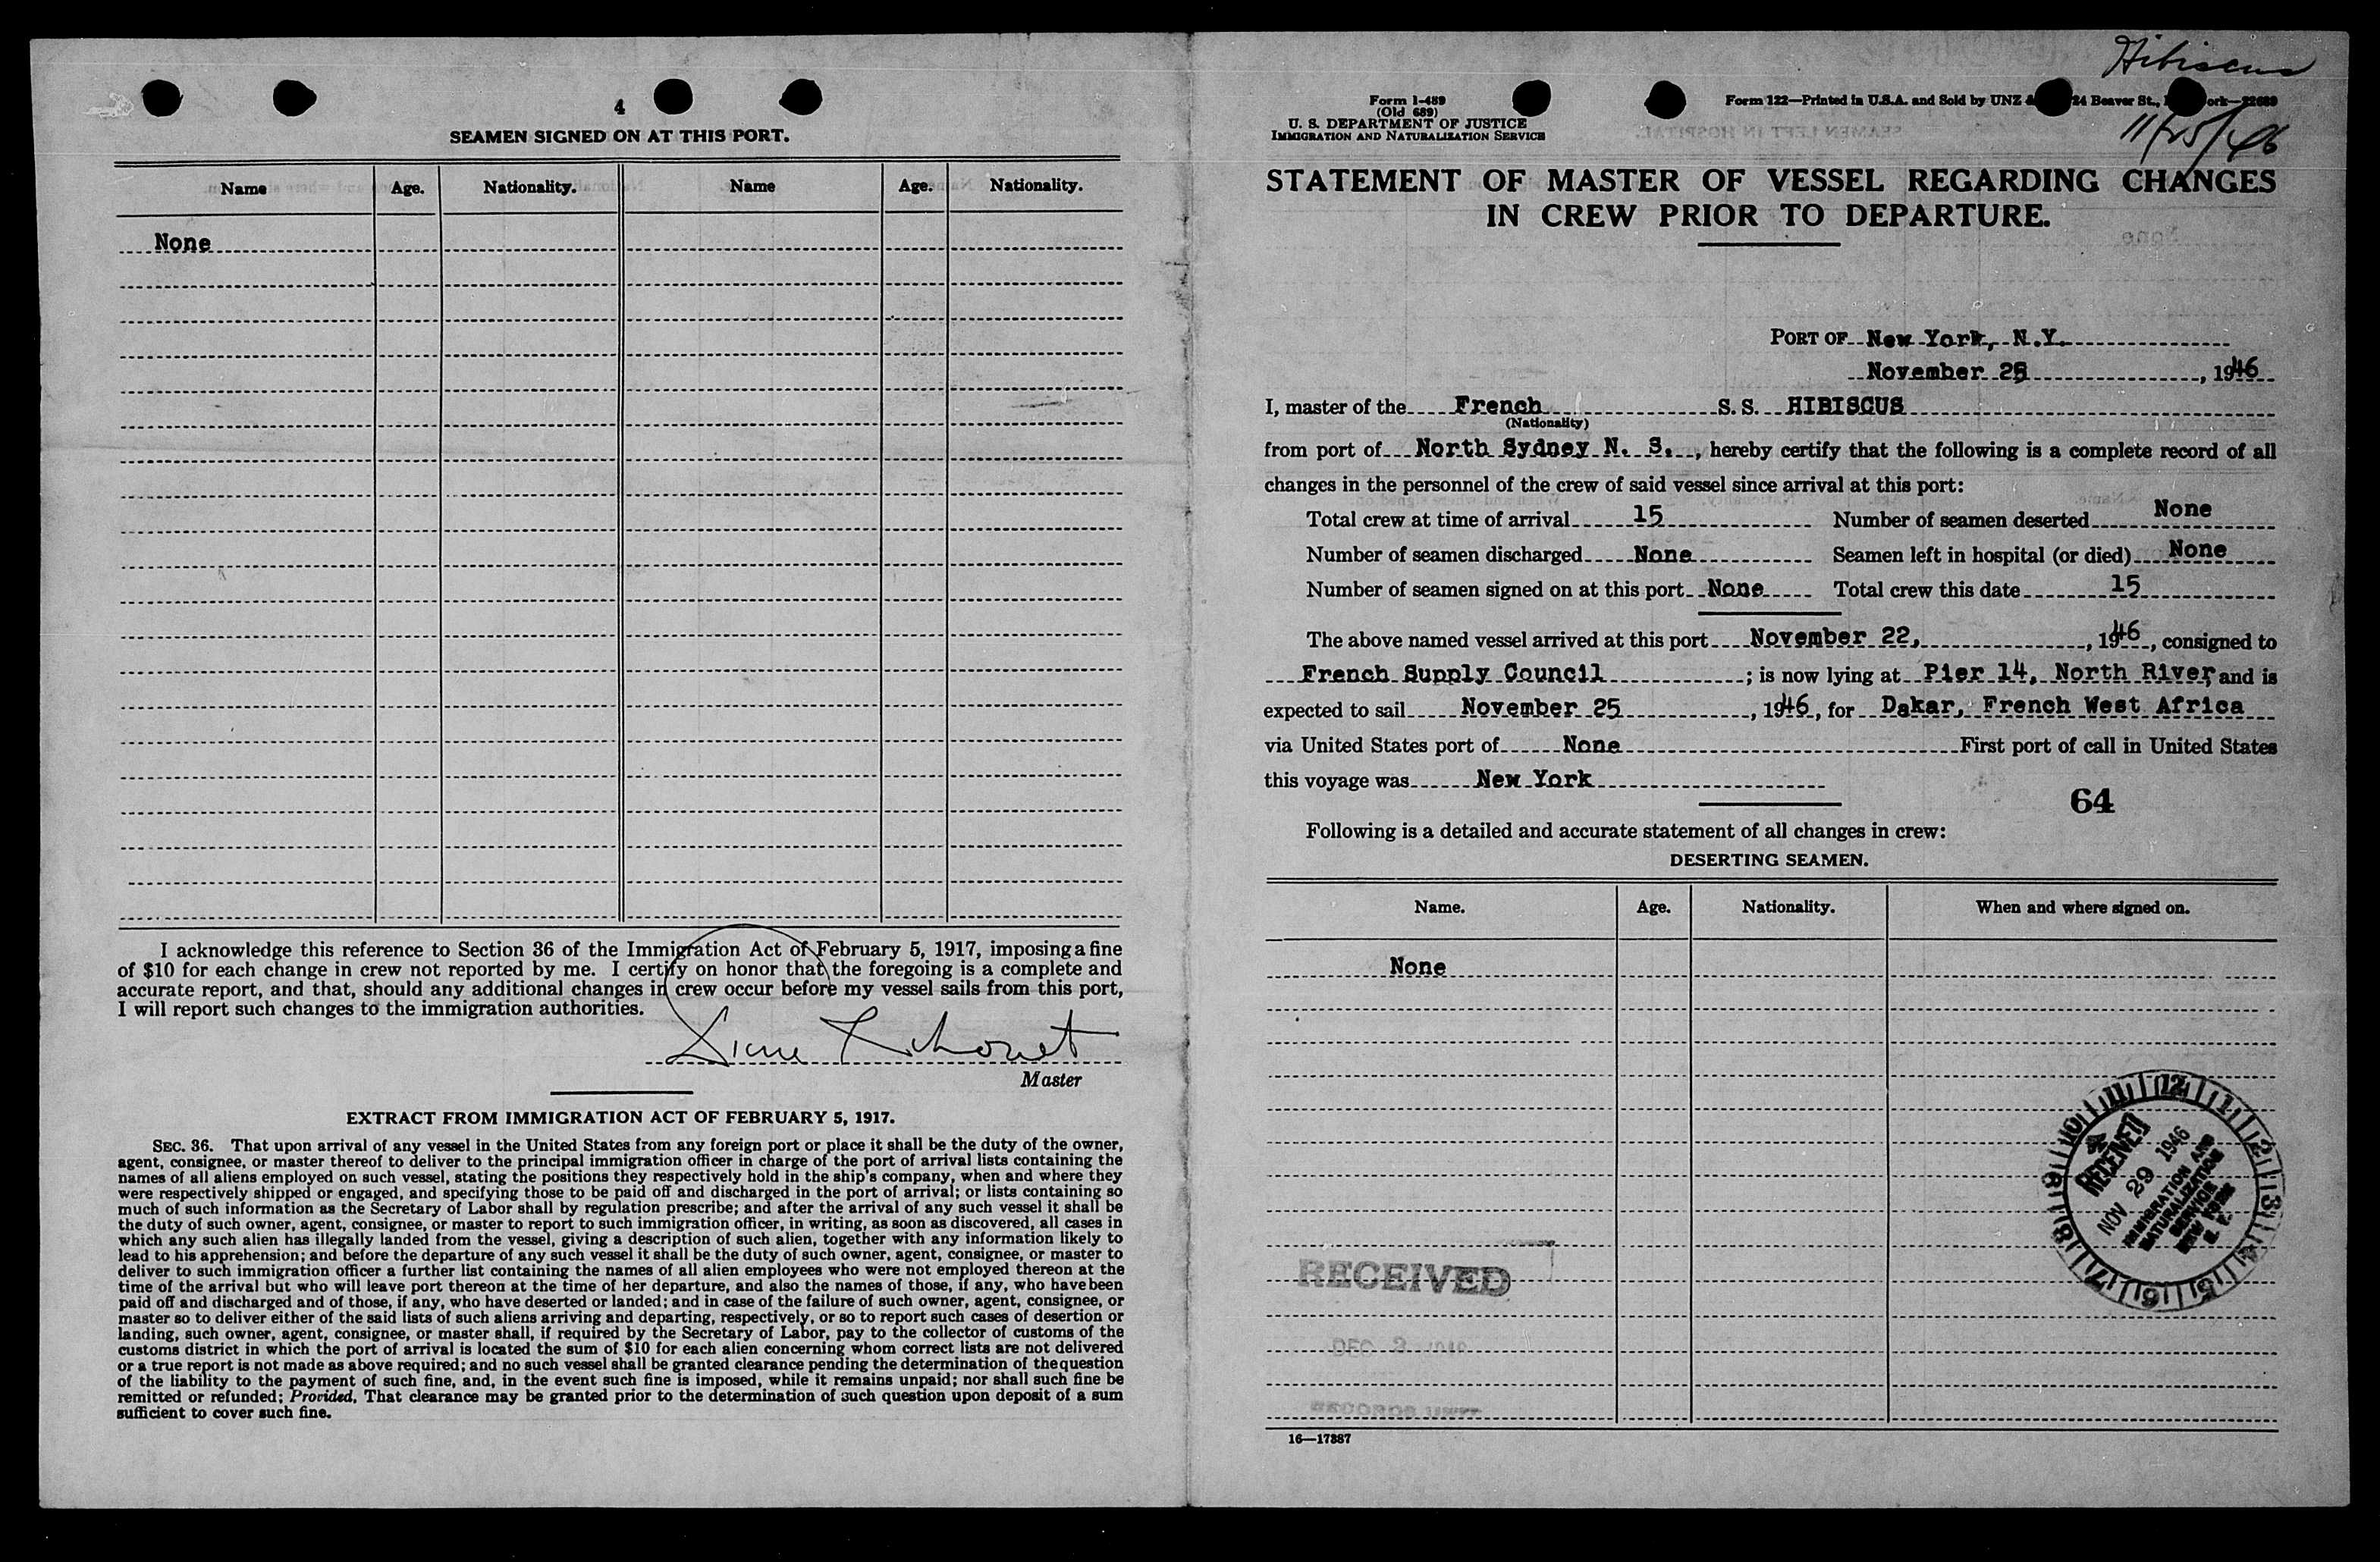 4
SEAMEN SIGNED ON AT THIS PORT.
Name Age. Nationality. Name Age. Nationality.
None
I acknowledge this reference to Section 36 of the Immigration Act of February 5, 1917, imposing a fine
of $10 for each change in crew not reported by me. I certify on honor that the foregoing is a complete and
accurate report, and that, should any additional changes in crew occur before my vessel sails from this port,
I will report such changes to the immigration authorities.
Master
EXTRACT FROM IMMIGRATION ACT OF FEBRUARY 5, 1917.
SEC. 36. That upon arrival of any vessel in the United States from any foreign port or place it shall be the duty of the owner,
agent, consignee, or master thereof to deliver to the principal immigration officer in charge of the port of arrival lists containing the
names of all aliens employed on such vessel, stating the positions they respectively hold in the ship's company, when and where they
were respectively shipped or engaged, and specifying those to be paid off and discharged in the port of arrival; or lists containing so
much of such information as the Secretary of Labor shall by regulation prescribe; and after the arrival of any such vessel it shall be
the duty of such owner, agent, consignee, or master to report to such immigration officer, in writing, as soon as discovered, all cases in
which any such alien has illegally landed from the vessel, giving a description of such alien, together with any information likely to
lead to his apprehension; and before the departure of any such vessel it shall be the duty of such owner, agent, consignee, or master to
deliver to such immigration officer a further list containing the names of all alien employees who were not employed thereon at the
time of the arrival but who will leave port thereon at the time of her departure, and also the names of those, if any, who have been
paid off and discharged and of those, if any, who have deserted or landed; and in case of the failure of such owner, agent, consignee, or
master so to deliver either of the said lists of such aliens arriving and departing, respectively, or so to report such cases of desertion or
landing, such owner, agent, consignee, or master shall, if required by the Secretary of Labor, pay to the collector of customs of the
customs district in which the port of arrival is located the sum of $10 for each alien concerning whom correct lists are not delivered
or a true report is not made as above required; and no such vessel shall be granted clearance pending the determination of the question
of the liability to the payment of such fine, and, in the event such fine is imposed, while it remains unpaid; nor shall such fine be
remitted or refunded; Provided, That clearance may be granted prior to the determination of such question upon deposit of a sum
sufficient to cover such fine.
Hibiscus
Form I-489
(Old 689)
U. S. DEPARTMENT OF JUSTICE
IMMIGRATION AND NATURALIZATION SERVICE
Form 122—Printed in U.S.A. and Sold by UNZ & 24 Beaver St.,
11/25/46
STATEMENT OF MASTER OF VESSEL REGARDING CHANGES
IN CREW PRIOR TO DEPARTURE.
PORT OF New York, N.Y.
November 25, 1946
I, master of the French S. S. HIBISCUS
(Nationality)
from port of North Sydney N. S., hereby certify that the following is a complete record of all
changes in the personnel of the crew of said vessel since arrival at this port:
Total crew at time of arrival 15 Number of seamen deserted None
Number of seamen discharged None Seamen left in hospital (or died) None
Number of seamen signed on at this port None Total crew this date 15
The above named vessel arrived at this port November 22, , 1946, consigned to
French Supply Council ; is now lying at Pier 14, North River, and is
expected to sail November 25, 1946, for Dakar, French West Africa
via United States port of None First port of call in United States
this voyage was New York
64
Following is a detailed and accurate statement of all changes in crew:
DESERTING SEAMEN.
Name. Age. Nationality. When and where signed on.
None
12 1 2 3 4 5 6 7 8 9 10 11
RECEIVED
NOV 29 1946
IMMIGRATION AND
NATURALIZATION
SERVICE
NEW YORK
N. Y.
RECEIVED
DEC 3
RECORDS UNIT
16—17387